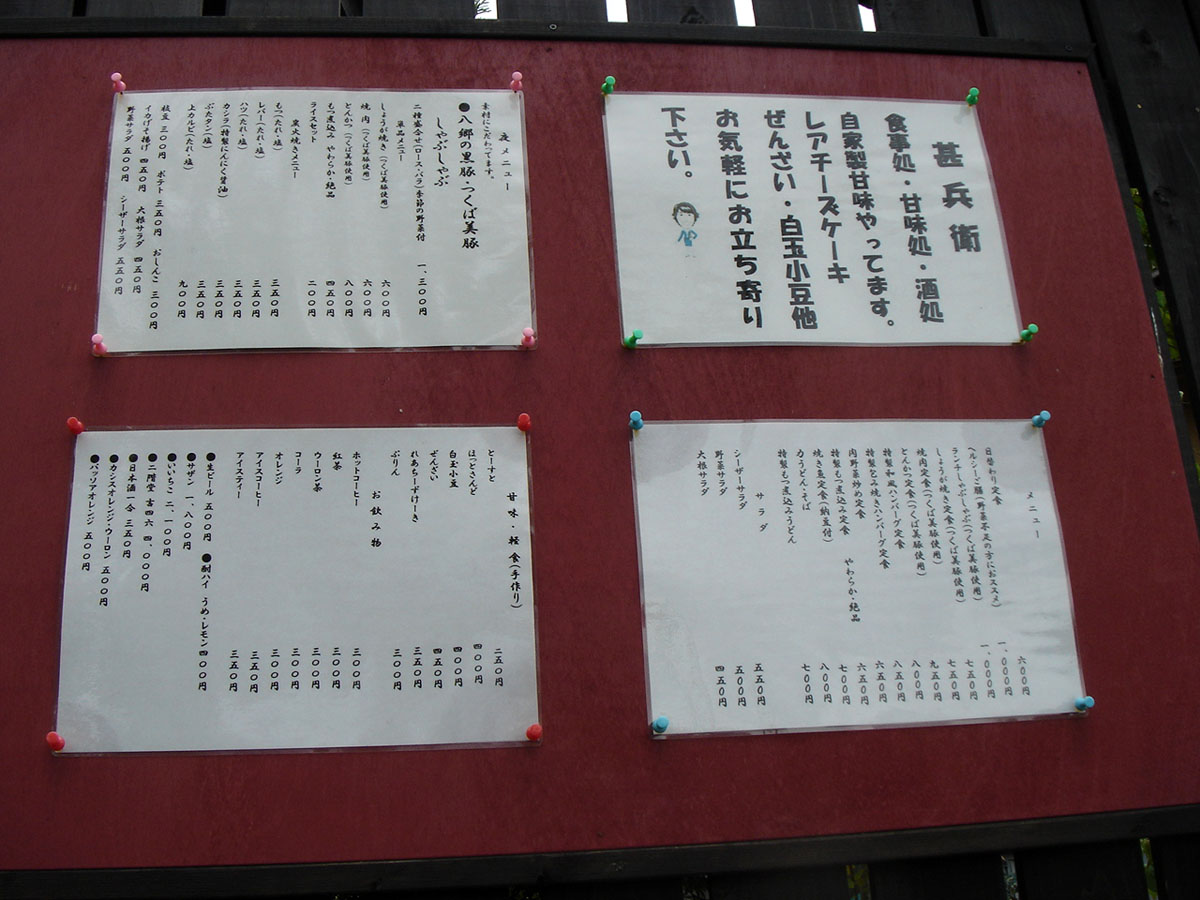 甚兵衛
食事処・甘味処・酒処
自家製甘味やってます。
レアチーズケーキ
ぜんざい・白玉小豆他
お気軽にお立ち寄り
下さい。
夜メニュー
素材にこだわってます。
●八郷の黒豚・つくば美豚
しゃぶしゃぶ
二種盛合せ(ロース・バラ)季節の野菜付 一、三〇〇円
単品メニュー
しょうが焼き(つくば美豚使用) 六〇〇円
焼肉(つくば美豚使用) 六〇〇円
とんかつ(つくば美豚使用) 八〇〇円
もつ煮込み やわらか・絶品 四五〇円
ライスセット 二〇〇円
炭火焼きメニュー
もつ(たれ・塩) 三五〇円
レバー(たれ・塩) 三五〇円
ハツ(たれ・塩) 三五〇円
カシラ(特製にんにく醤油) 三五〇円
ぶたタン(塩) 三五〇円
上カルビ(たれ・塩) 九〇〇円
枝豆 三〇〇円 ポテト 三五〇円 おしんこ 三〇〇円
イカげそ揚げ 四五〇円 大根サラダ 四五〇円
野菜サラダ 五〇〇円 シーザーサラダ 五五〇円
メニュー
日替わり定食 六〇〇円
ヘルシーご膳(野菜不足の方におススメ) 一、〇〇〇円
ランチしゃぶしゃぶ(つくば美豚使用) 一、〇〇〇円
しょうが焼き定食(つくば美豚使用) 七五〇円
焼肉定食(つくば美豚使用) 七五〇円
とんかつ定食(つくば美豚使用) 九五〇円
特製和風ハンバーグ定食 八〇〇円
特製包み焼きハンバーグ定食 八五〇円
肉野菜炒め定食 六五〇円
特製もつ煮込み定食 やわらか・絶品 六五〇円
焼き魚定食(納豆付) 七〇〇円
力うどん・そば 八〇〇円
特製もつ煮込みうどん 七〇〇円
サラダ
シーザーサラダ 五五〇円
野菜サラダ 五〇〇円
大根サラダ 四五〇円
甘味・軽食(手作り)
とーすと 二五〇円
ほっとさんど 四〇〇円
白玉小豆 四〇〇円
ぜんざい 四五〇円
れあちーずけーき 三五〇円
ぷりん 三〇〇円
お飲み物
ホットコーヒー 三〇〇円
紅茶 三〇〇円
ウーロン茶 三〇〇円
コーラ 三〇〇円
オレンジ 三〇〇円
アイスコーヒー 三五〇円
アイスティー 三五〇円
●生ビール 五〇〇円 ●酎ハイ うめ・レモン 四〇〇円
●サザン 一、八〇〇円
●いいちこ 二、一〇〇円
●二階堂 吉四六 四、〇〇〇円
●日本酒 一合 三五〇円
●カシスオレンジ・ウーロン 五〇〇円
●パッソアオレンジ 五〇〇円